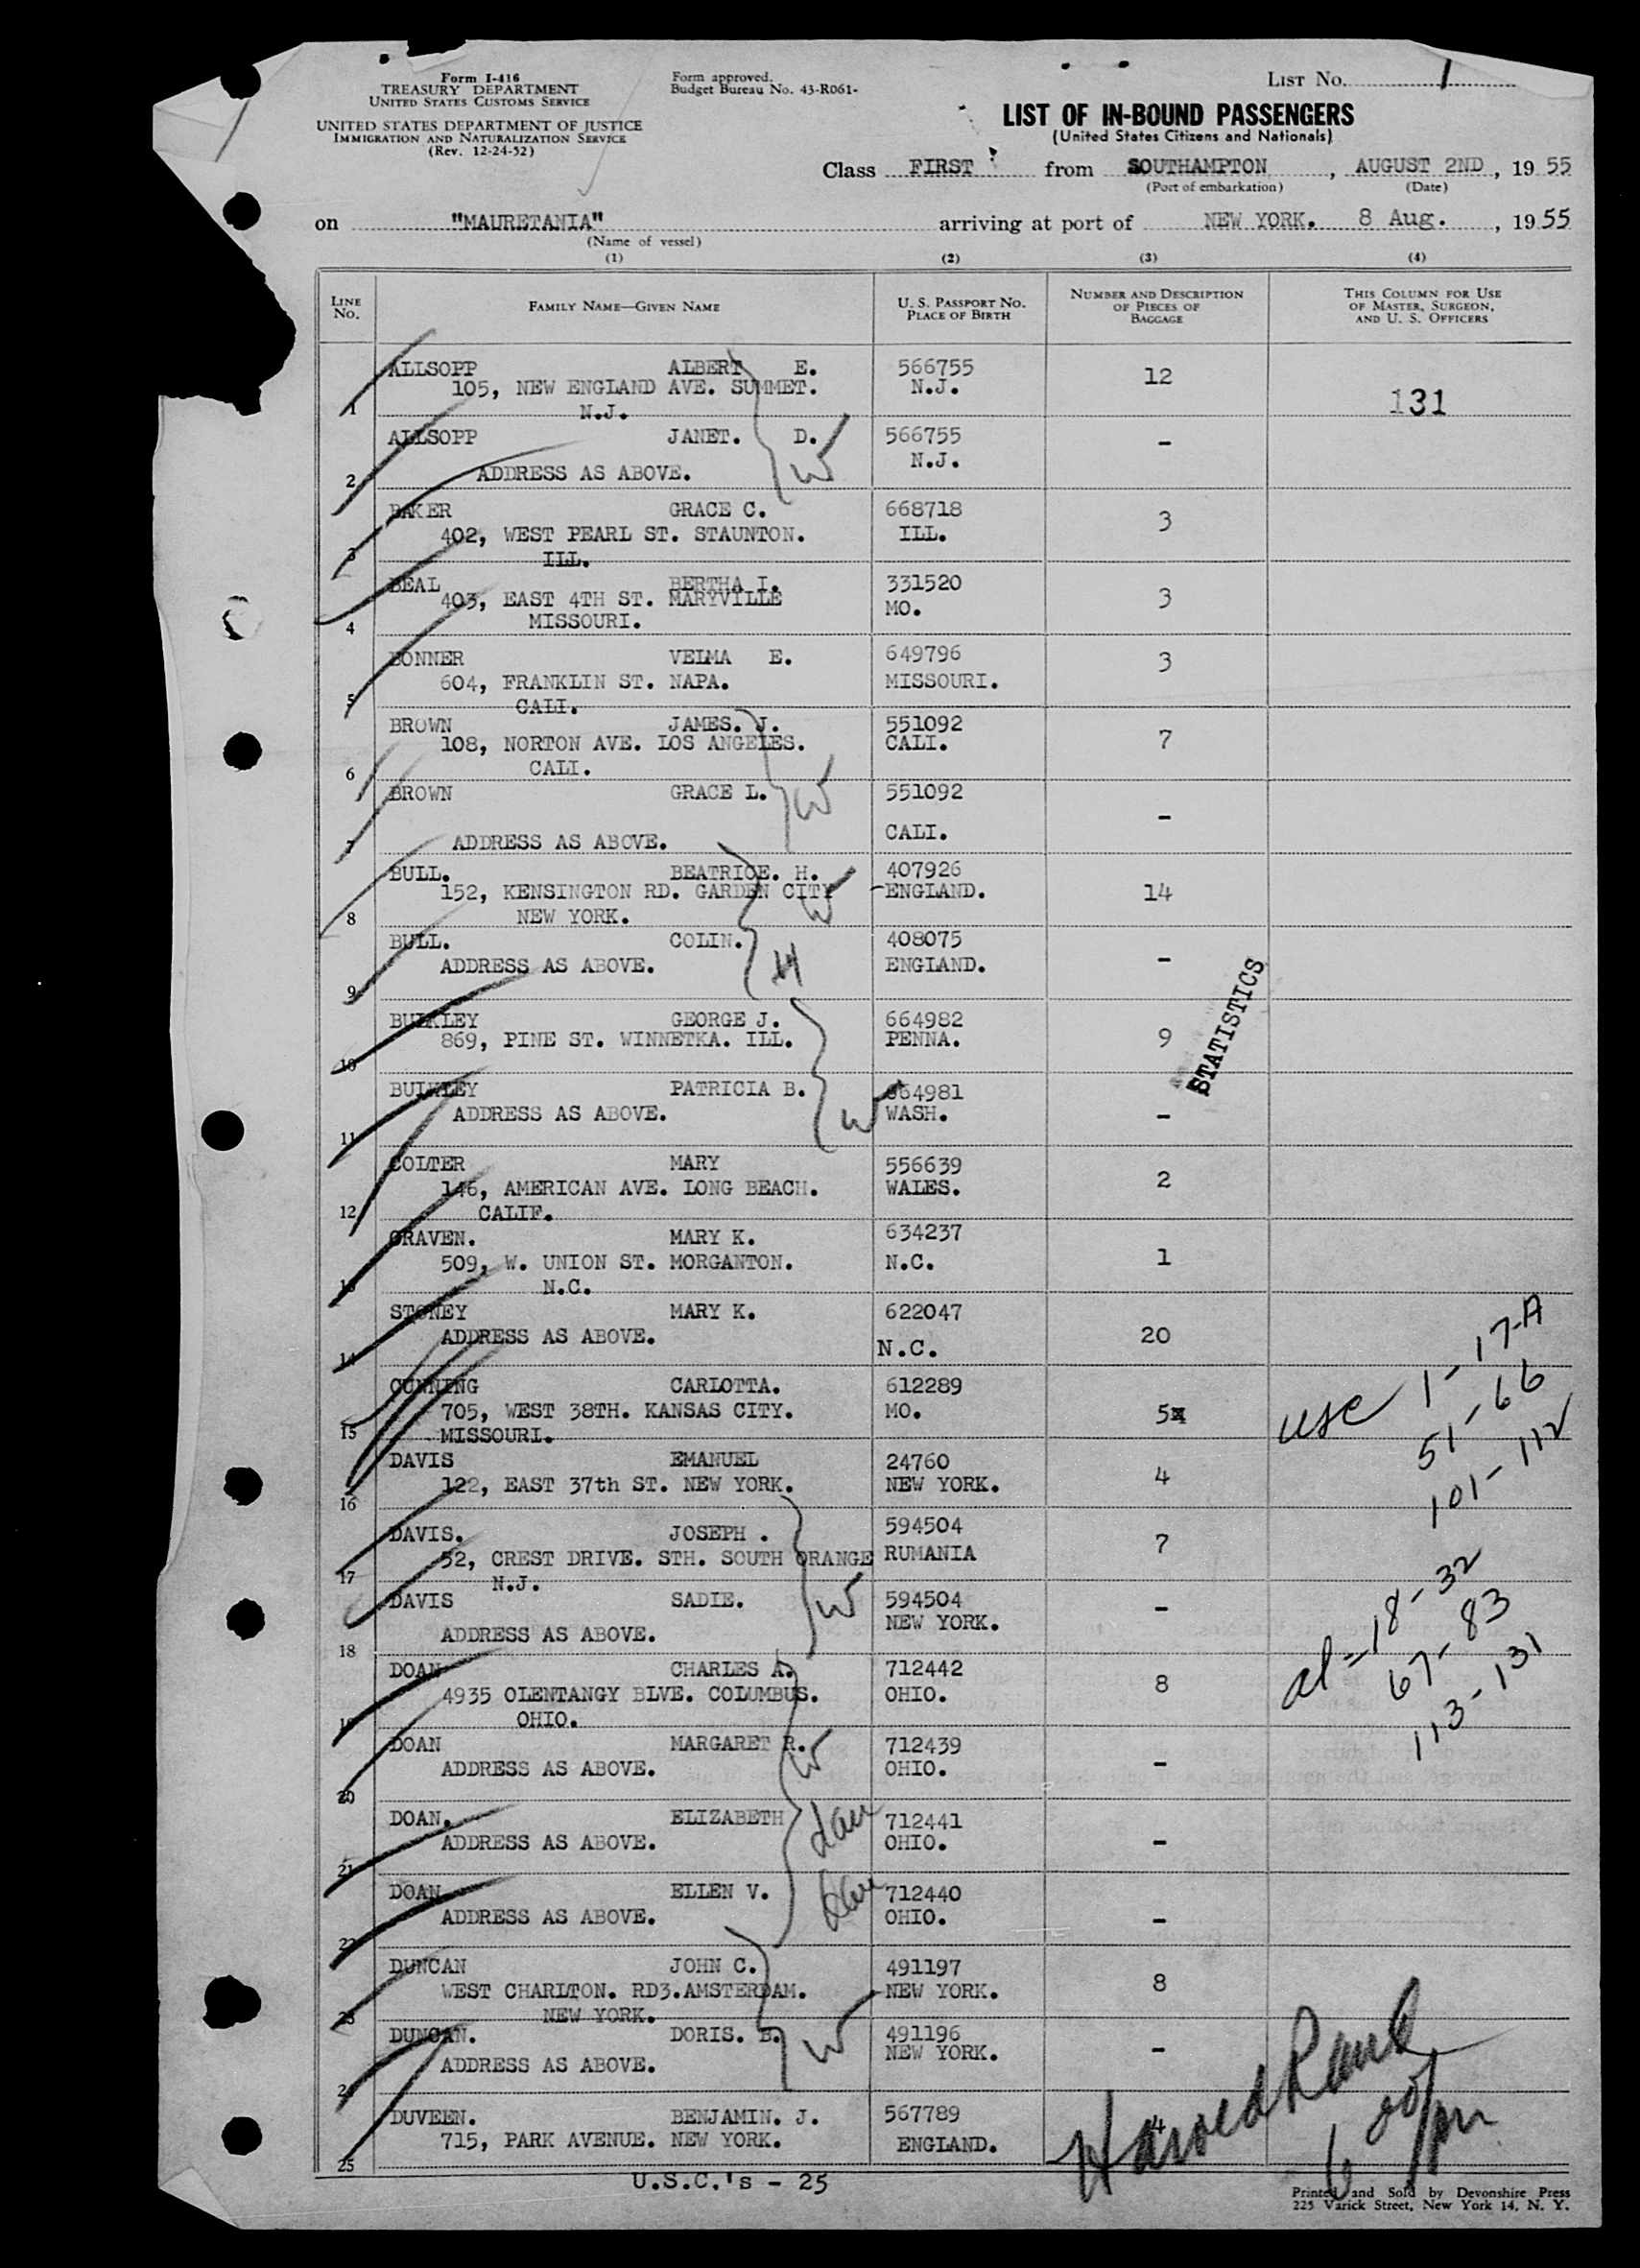 Form I-416
TREASURY DEPARTMENT
UNITED STATES CUSTOMS SERVICE
UNITED STATES DEPARTMENT OF JUSTICE
IMMIGRATION AND NATURALIZATION SERVICE
(Rev. 12-24-52)
Form approved.
Budget Bureau No. 43-R061-
LIST NO. 1
LIST OF IN-BOUND PASSENGERS
(United States Citizens and Nationals)
Class FIRST from SOUTHAMPTON, AUGUST 2ND, 19 55
(Port of embarkation) (Date)
on "MAURETANIA" arriving at port of NEW YORK. 8 Aug., 19 55
(Name of vessel)
(1) (2) (3) (4)
LINE NO. FAMILY NAME—GIVEN NAME U. S. PASSPORT NO. PLACE OF BIRTH NUMBER AND DESCRIPTION OF PIECES OF BAGGAGE THIS COLUMN FOR USE OF MASTER, SURGEON, AND U. S. OFFICERS
ALLSOPP ALBERT E. 566755 12
105, NEW ENGLAND AVE. SUMMET. N.J.
1 N.J. 131
ALLSOPP JANET. D. 566755 -
W N.J.
2 ADDRESS AS ABOVE.
BAKER GRACE C. 668718 3
402, WEST PEARL ST. STAUNTON. ILL.
3 ILL.
BEAL BERTHA I. 331520 3
403, EAST 4TH ST. MARYVILLE MO.
4 MISSOURI.
BONNER VELMA E. 649796 3
604, FRANKLIN ST. NAPA. MISSOURI.
5 CALI.
BROWN JAMES. J. 551092 7
108, NORTON AVE. LOS ANGELES. CALI.
6 CALI.
BROWN GRACE L. W 551092 -
7 ADDRESS AS ABOVE. CALI.
BULL. BEATRICE. H. 407926 14
152, KENSINGTON RD. GARDEN CITY W ENGLAND.
8 NEW YORK.
BULL. COLIN. 408075 -
ADDRESS AS ABOVE. H ENGLAND.
9
STATISTICS
BULKLEY GEORGE J. 664982 9
869, PINE ST. WINNETKA. ILL. PENNA.
10
BULKLEY PATRICIA B. 664981 -
ADDRESS AS ABOVE. W WASH.
11
COLTER MARY 556639 2
146, AMERICAN AVE. LONG BEACH. WALES.
12 CALIF.
CRAVEN. MARY K. 634237 1
509, W. UNION ST. MORGANTON. N.C.
13 N.C.
STONEY MARY K. 622047 20
ADDRESS AS ABOVE. N.C.
14
CUNNING CARLOTTA. 612289 5
705, WEST 38TH. KANSAS CITY. MO.
15 MISSOURI.
use 1-17-A
51-66
101-112
DAVIS EMANUEL 24760 4
122, EAST 37th ST. NEW YORK. NEW YORK.
16
DAVIS. JOSEPH . 594504 7
52, CREST DRIVE. STH. SOUTH ORANGE RUMANIA
17 N.J.
DAVIS SADIE. W 594504 -
ADDRESS AS ABOVE. NEW YORK.
18
al-18-32
67-83
113-131
DOAN CHARLES A. 712442 8
4935 OLENTANGY BLVE. COLUMBUS. OHIO.
19 OHIO.
DOAN MARGARET R. W 712439 -
ADDRESS AS ABOVE. OHIO.
20
DOAN. ELIZABETH dau 712441 -
ADDRESS AS ABOVE. OHIO.
21
DOAN ELLEN V. dau 712440 -
ADDRESS AS ABOVE. OHIO.
22
DUNCAN JOHN C. 491197 8
WEST CHARLTON. RD3.AMSTERDAM. NEW YORK.
23 NEW YORK.
DUNCAN. DORIS. B. W 491196 -
ADDRESS AS ABOVE. NEW YORK.
24
DUVEEN. BENJAMIN. J. 567789 4
715, PARK AVENUE. NEW YORK. ENGLAND.
25
U.S.C.'s - 25
6 00/pm
Printed and Sold by Devonshire Press
225 Varick Street, New York 14, N. Y.